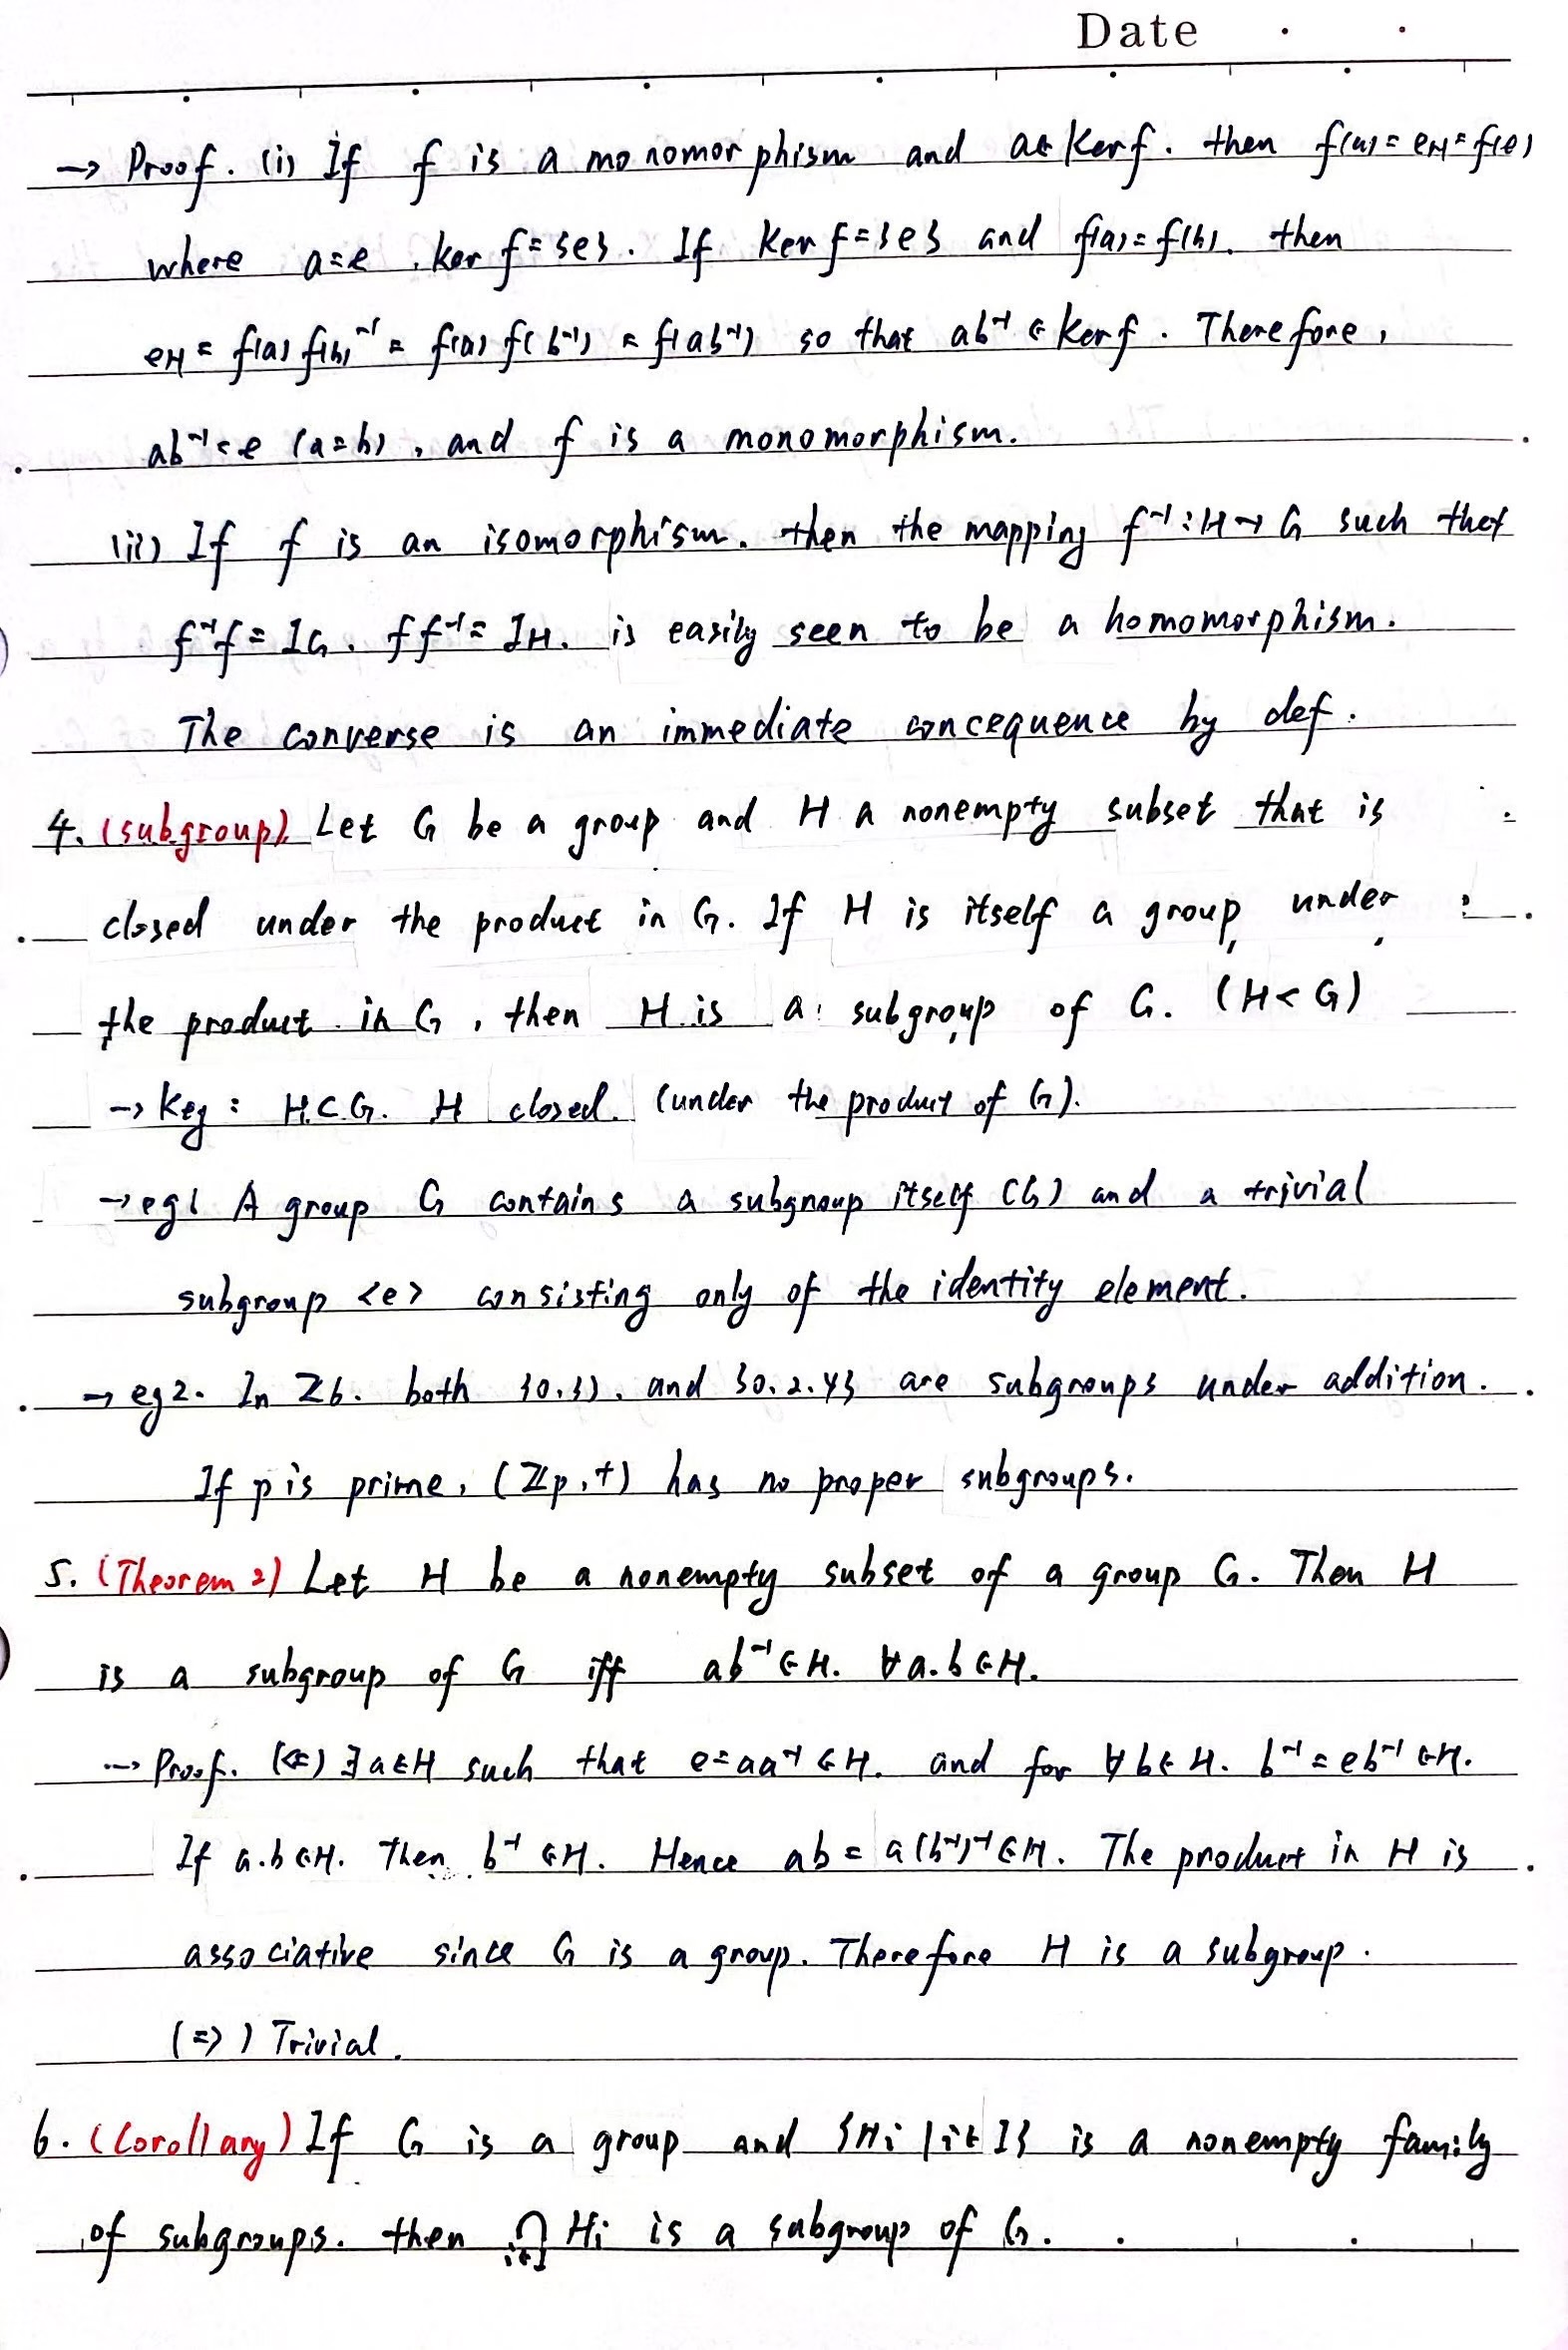 Date
→ Proof. (i) If f is a monomorphism and a∈Kerf. then f(a)=eH=f(e)
where a=e, ker f={e}. If Ker f={e} and f(a)=f(b). then
eH = f(a)f(b)⁻¹ = f(a)f(b⁻¹) = f(ab⁻¹) so that ab⁻¹ ∈ Kerf. Therefore,
ab⁻¹=e (a=b), and f is a monomorphism.
(ii) If f is an isomorphism. then the mapping f⁻¹:H→G such that
f⁻¹f=1G. ff⁻¹=1H. is easily seen to be a homomorphism.
The converse is an immediate concequence by def.
4. (subgroup). Let G be a group and H a nonempty subset that is
closed under the product in G. If H is itself a group under
the product in G, then H is a subgroup of G. (H<G)
→ Key: H⊂G. H closed. (under the product of G).
→ eg1 A group G contains a subgroup itself (G) and a trivial
subgroup <e> consisting only of the identity element.
→ eg2. In Z6. both {0.3}. and {0.2.4} are subgroups under addition.
If p is prime, (Zp,+) has no proper subgroups.
5. (Theorem 2) Let H be a nonempty subset of a group G. Then H
is a subgroup of G iff ab⁻¹∈H. ∀a.b∈H.
→ Proof. (⇐) ∃a∈H such that e=aa⁻¹∈H. and for ∀b∈H. b⁻¹=eb⁻¹∈H.
If a.b∈H. Then b⁻¹∈H. Hence ab = a(b⁻¹)⁻¹∈H. The product in H is
associative since G is a group. Therefore H is a subgroup.
(⇒) Trivial.
6. (Corollary) If G is a group and {Hi|i∈I} is a nonempty family
of subgroups. then ∩i∈I Hi is a subgroup of G.